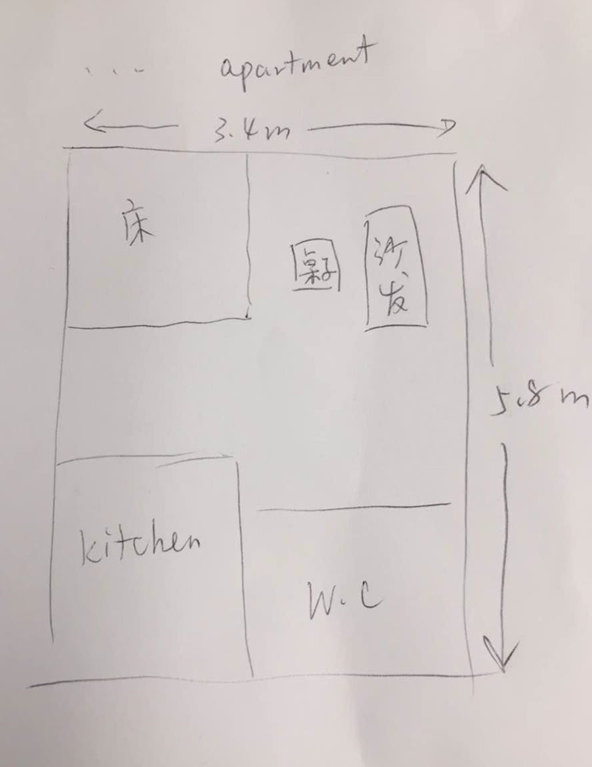 ... apartment
3.4m
床
桌子
沙发
5.8m
kitchen
W.C